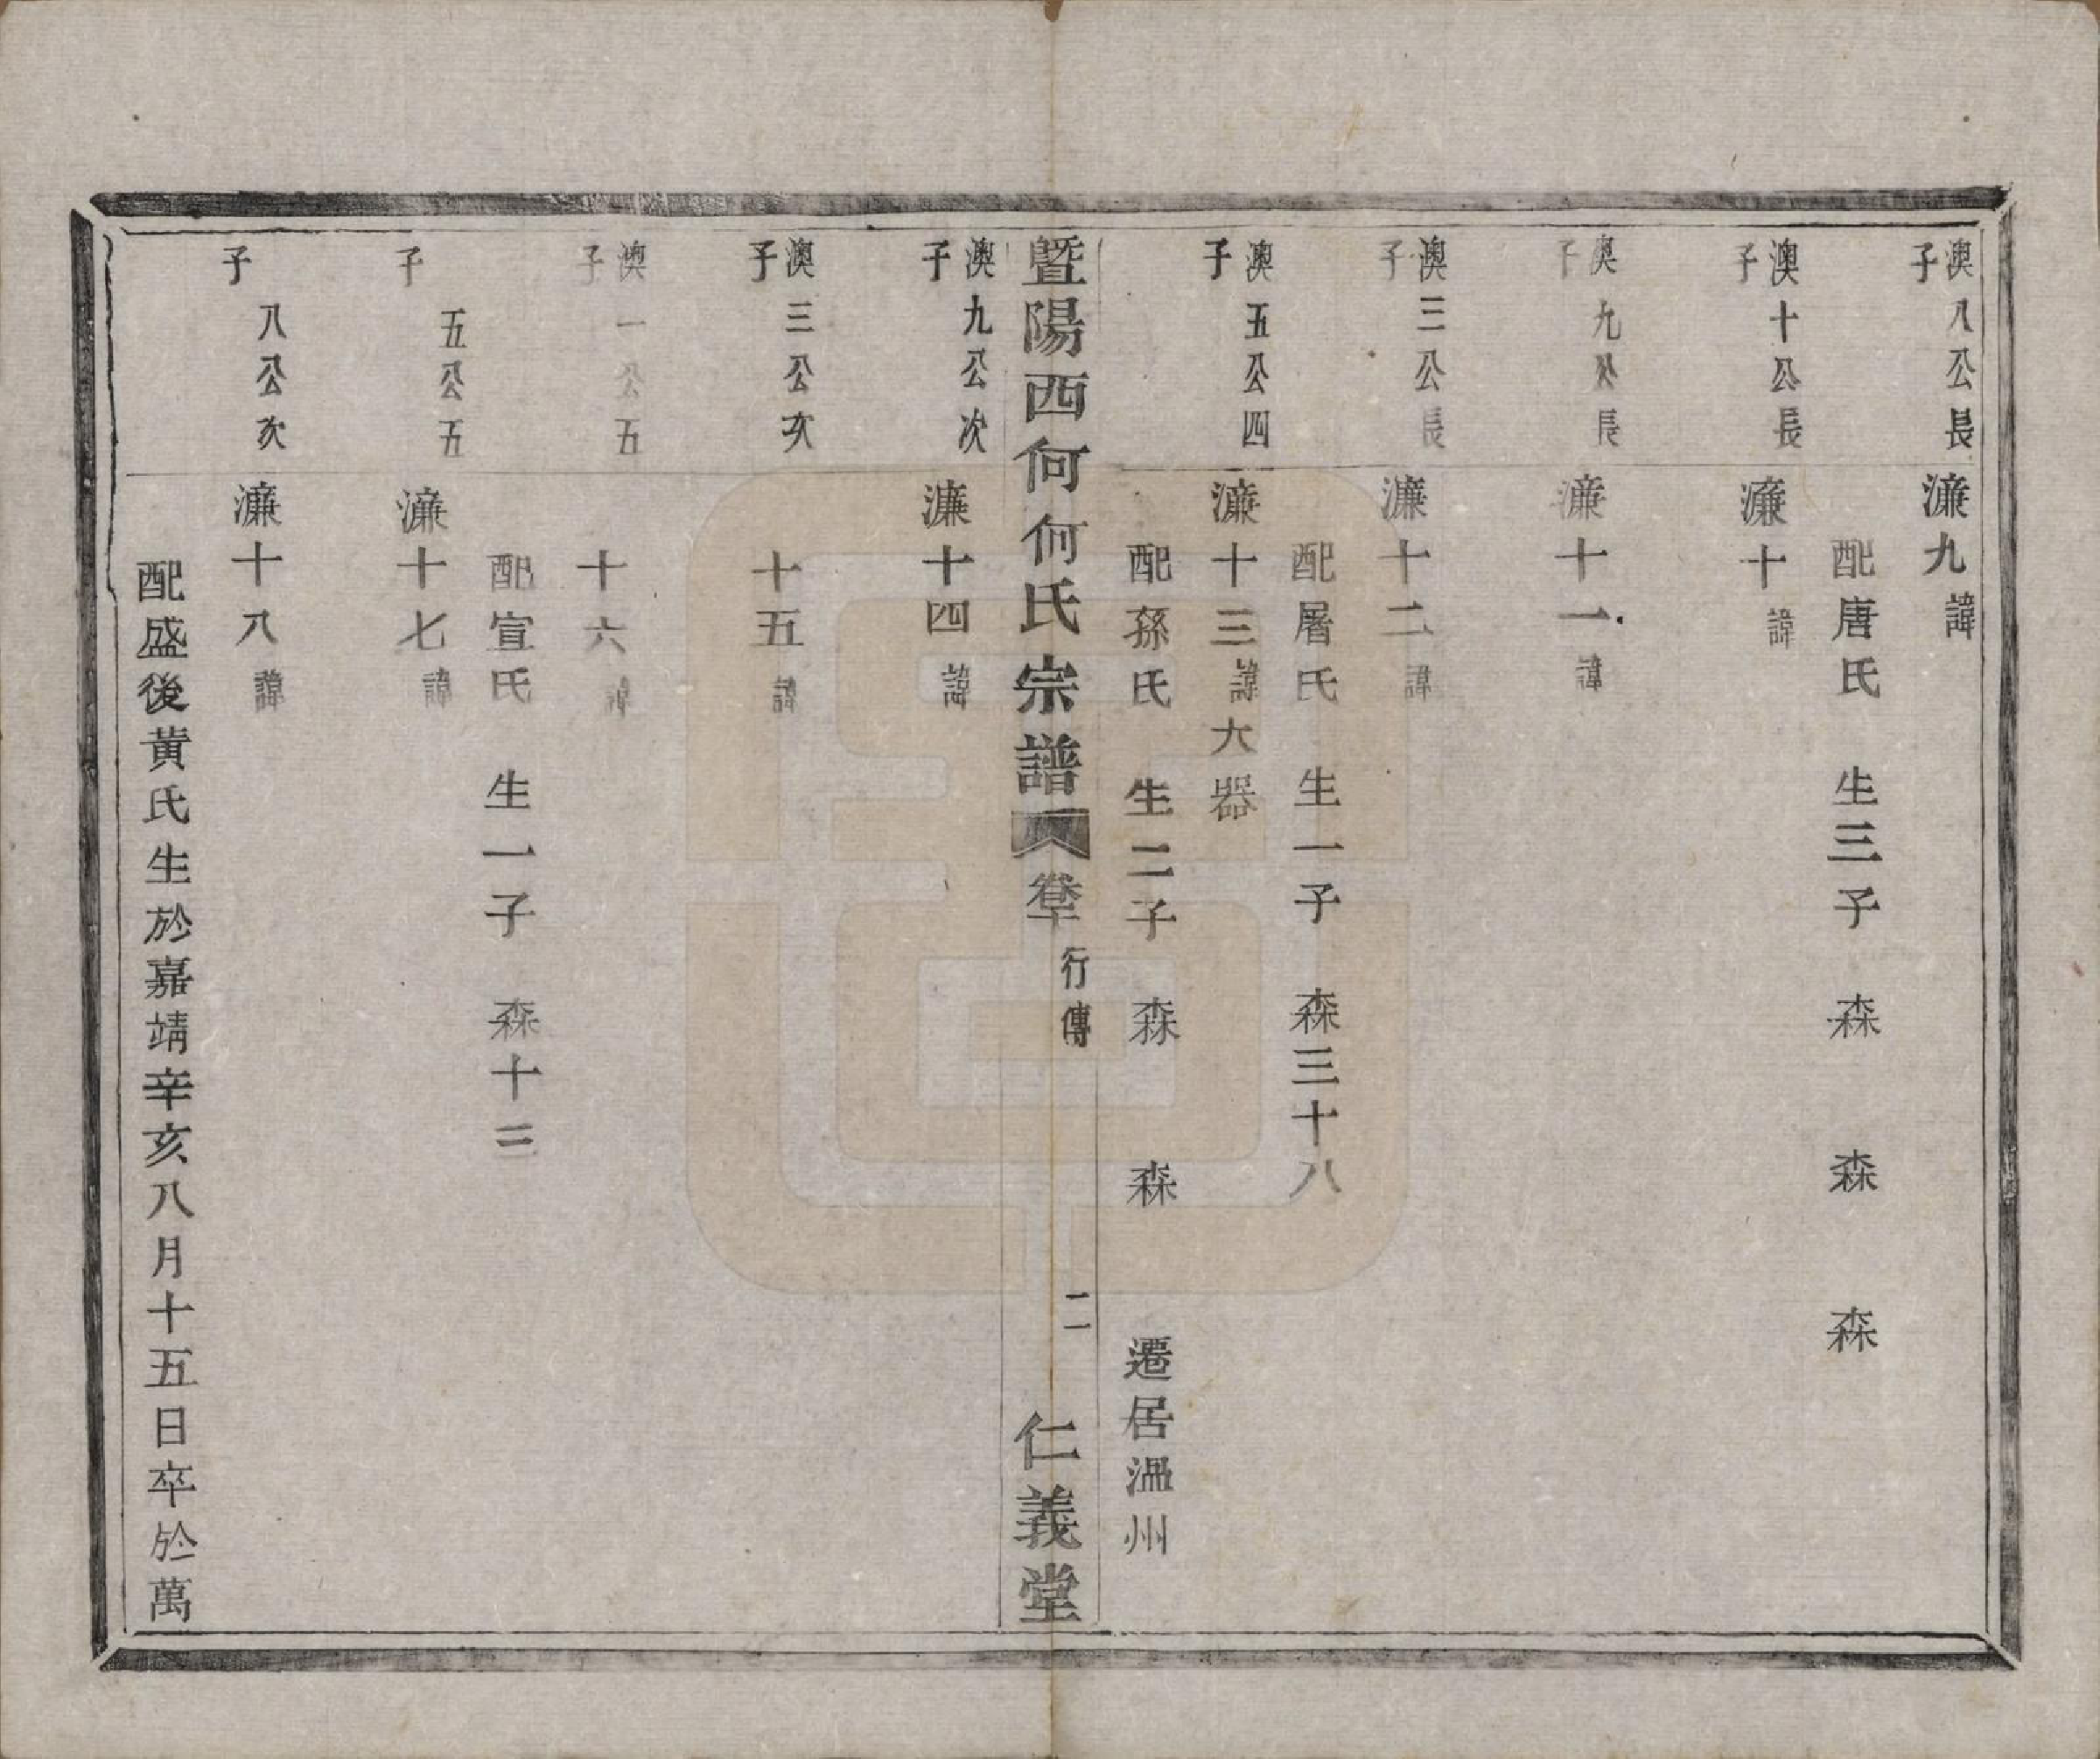 澳八公長子
濂九諱
配唐氏 生三子 森 森 森
澳十公長子
濂十諱
澳九公長子
濂十一諱
澳三公長子
濂十二諱
配屠氏 生一子 森三十八
澳五公四子
濂十三諱大器
配孫氏 生二子 森 森 遷居溫州
暨陽西何何氏宗譜 行傳 二 仁義堂
澳九公次子
濂十四諱
澳三公次子
十五諱
澳一公五子
十六諱
配宣氏 生一子 森十三
五公五子
濂十七諱
八公次子
濂十八諱
配盛後黄氏生於嘉靖辛亥八月十五日卒於萬